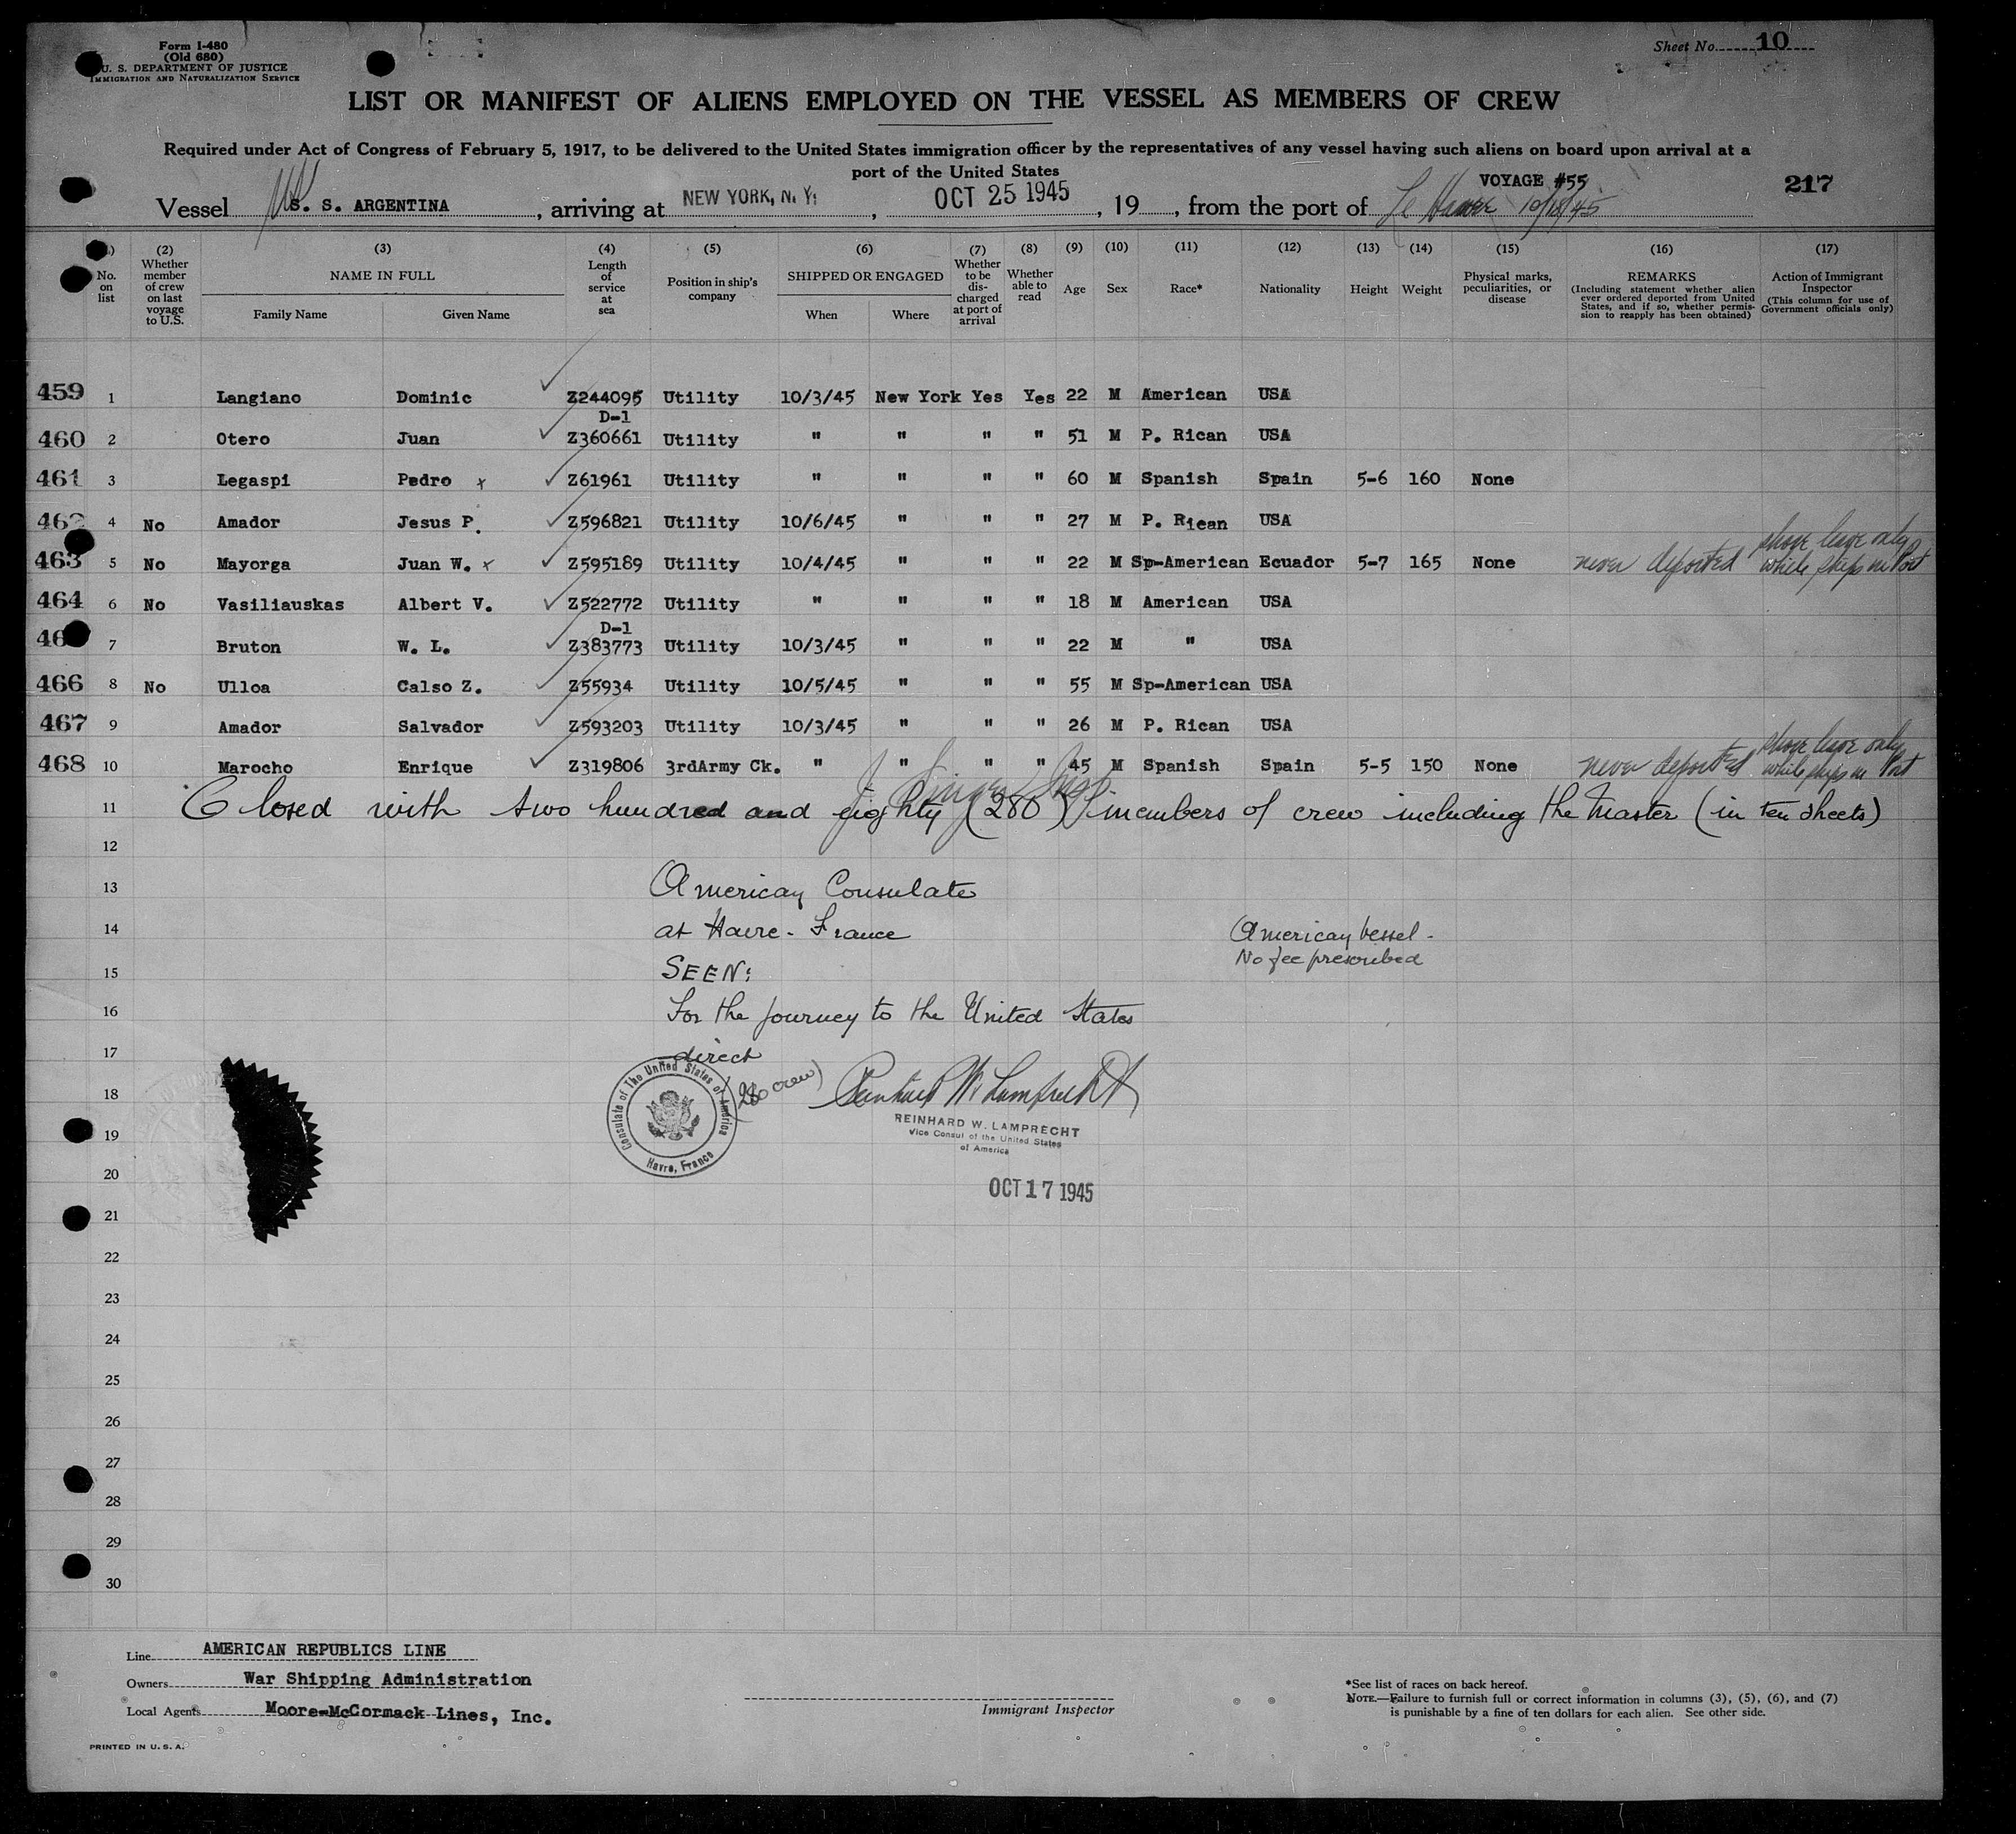 Form I-480
(Old 680)
U. S. DEPARTMENT OF JUSTICE
IMMIGRATION AND NATURALIZATION SERVICE
Sheet No. 10
LIST OR MANIFEST OF ALIENS EMPLOYED ON THE VESSEL AS MEMBERS OF CREW
Required under Act of Congress of February 5, 1917, to be delivered to the United States immigration officer by the representatives of any vessel having such aliens on board upon arrival at a
port of the United States
VOYAGE #55
217
Vessel S. S. ARGENTINA, arriving at NEW YORK, N. Y., OCT 25 1945, 19, from the port of Le Havre 10/18/45
(2) (3) (4) (5) (6) (7) (8) (9) (10) (11) (12) (13) (14) (15) (16) (17)
No. on list
Whether member of crew on last voyage to U.S.
NAME IN FULL
Family Name
Given Name
Length of service at sea
Position in ship's company
SHIPPED OR ENGAGED
When
Where
Whether to be discharged at port of arrival
Whether able to read
Age
Sex
Race*
Nationality
Height
Weight
Physical marks, peculiarities, or disease
REMARKS
(Including statement whether alien ever ordered deported from United States, and if so, whether permission to reapply has been obtained)
Action of Immigrant Inspector
(This column for use of Government officials only)
459 1 Langiano Dominic ✓ Z244095 Utility 10/3/45 New York Yes Yes 22 M American USA
D-1
460 2 Otero Juan ✓ Z360661 Utility " " " " 51 M P. Rican USA
461 3 Legaspi Pedro x ✓ Z61961 Utility " " " " 60 M Spanish Spain 5-6 160 None
462 4 No Amador Jesus P. ✓ Z596821 Utility 10/6/45 " " " 27 M P. Rican USA
463 5 No Mayorga Juan W. x ✓ Z595189 Utility 10/4/45 " " " 22 M Sp-American Ecuador 5-7 165 None never deported shore leave only while ships in Port
464 6 No Vasiliauskas Albert V. ✓ Z522772 Utility " " " " 18 M American USA
D-1
46 7 Bruton W. L. ✓ Z383773 Utility 10/3/45 " " " 22 M " USA
466 8 No Ulloa Calso Z. ✓ Z55934 Utility 10/5/45 " " " 55 M Sp-American USA
467 9 Amador Salvador ✓ Z593203 Utility 10/3/45 " " " 26 M P. Rican USA
468 10 Marocho Enrique ✓ Z319806 3rdArmy Ck. " " " " 45 M Spanish Spain 5-5 150 None never deported shore leave only while ships in Port
11 Closed with two hundred and eighty (280) members of crew including the Master (in ten sheets)
12
13 American Consulate
14 at Havre - France American vessel -
No fee prescribed
15 SEEN:
16 For the journey to the United States
17 direct
(280 crew)
Consulate of The United States of America
Havre, France
18 Reinhard W. Lamprecht
REINHARD W. LAMPRECHT
19 Vice Consul of the United States
of America
20 OCT 17 1945
21
22
23
24
25
26
27
28
29
30
Line AMERICAN REPUBLICS LINE
Owners War Shipping Administration
Local Agents Moore-McCormack Lines, Inc.
Immigrant Inspector
*See list of races on back hereof.
NOTE.—Failure to furnish full or correct information in columns (3), (5), (6), and (7)
is punishable by a fine of ten dollars for each alien. See other side.
PRINTED IN U. S. A.